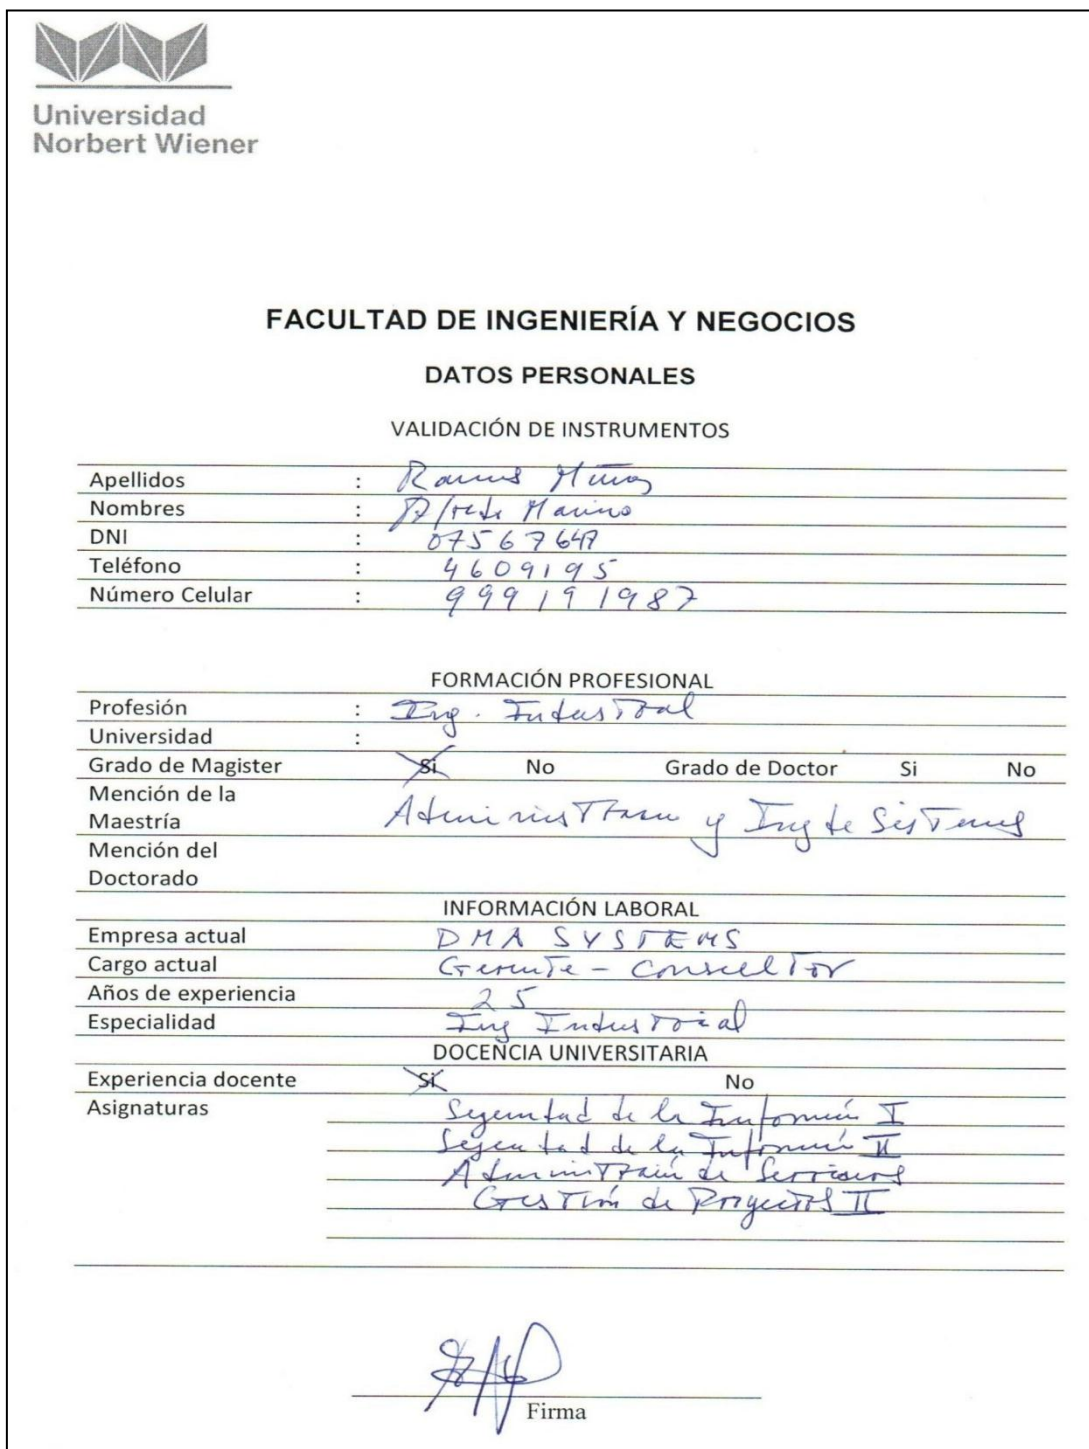 Universidad
Norbert Wiener
FACULTAD DE INGENIERÍA Y NEGOCIOS
DATOS PERSONALES
VALIDACIÓN DE INSTRUMENTOS
Apellidos : Ramos
Nombres : Marino
DNI :
Teléfono : 4609195
Número Celular : 999191987
FORMACIÓN PROFESIONAL
Profesión : Ing. Industrial
Universidad :
Grado de Magister Si No Grado de Doctor Si No
Mención de la
Maestría Administración y Ing de Sistemas
Mención del
Doctorado
INFORMACIÓN LABORAL
Empresa actual DMA SYSTEMS
Cargo actual Gerente - Consultor
Años de experiencia 25
Especialidad Ing Industrial
DOCENCIA UNIVERSITARIA
Experiencia docente Si No
Asignaturas Seguridad de la Información I
Seguridad de la Información II
Administración de Servicios
Gestión de Proyectos II
Firma